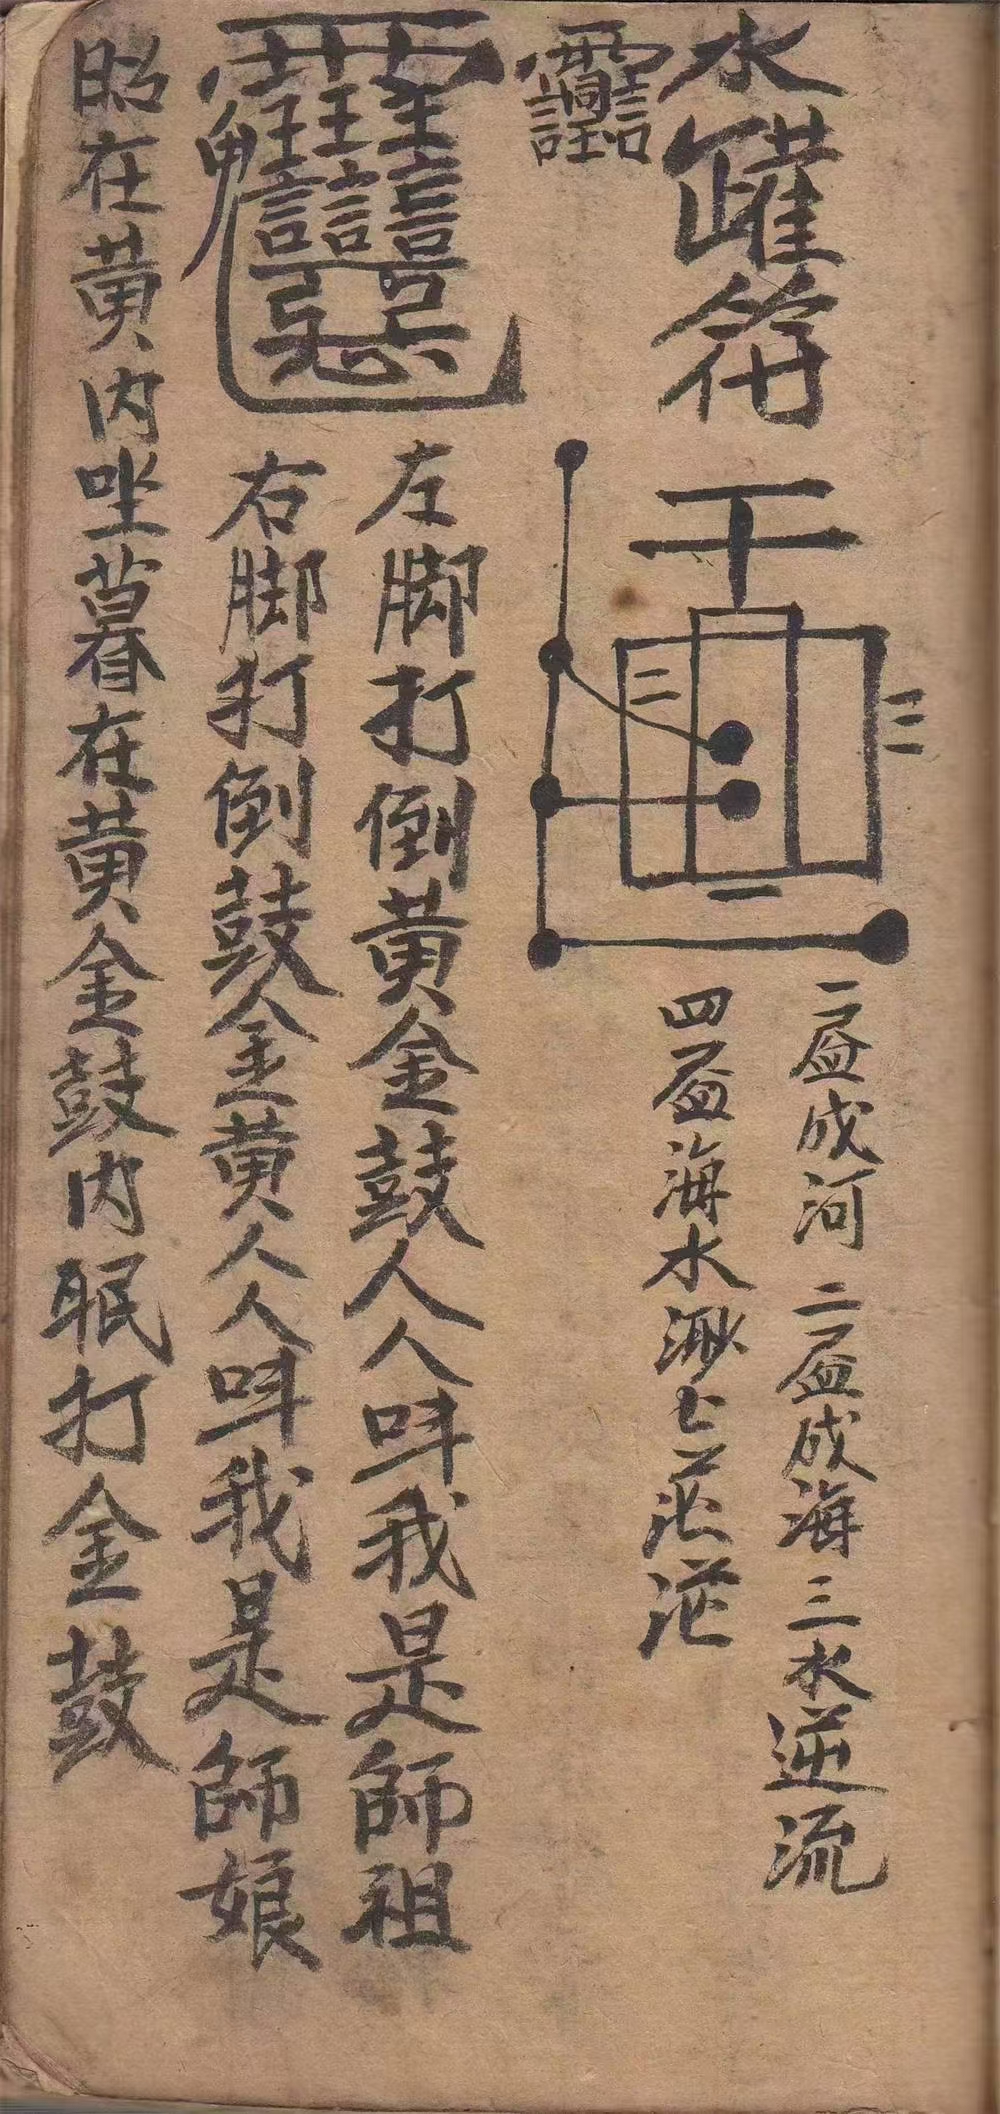 水罐符
二盈成河二盈成海三水逆流
四盈海水渺七茫茫
左脚打倒黄金鼓人人呌我是師祖
右脚打倒鼓金黄人人呌我是師娘
昭在黄内坐暮在黄金鼓内眠打金鼓